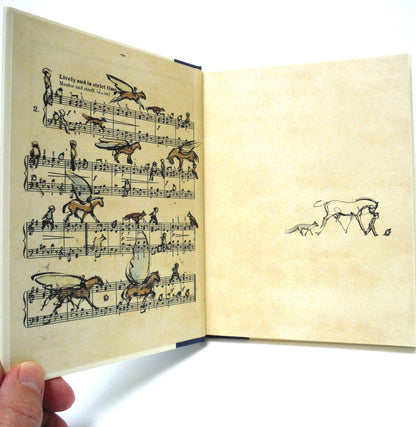 Lively and in strict time
Munter und straff.
2.